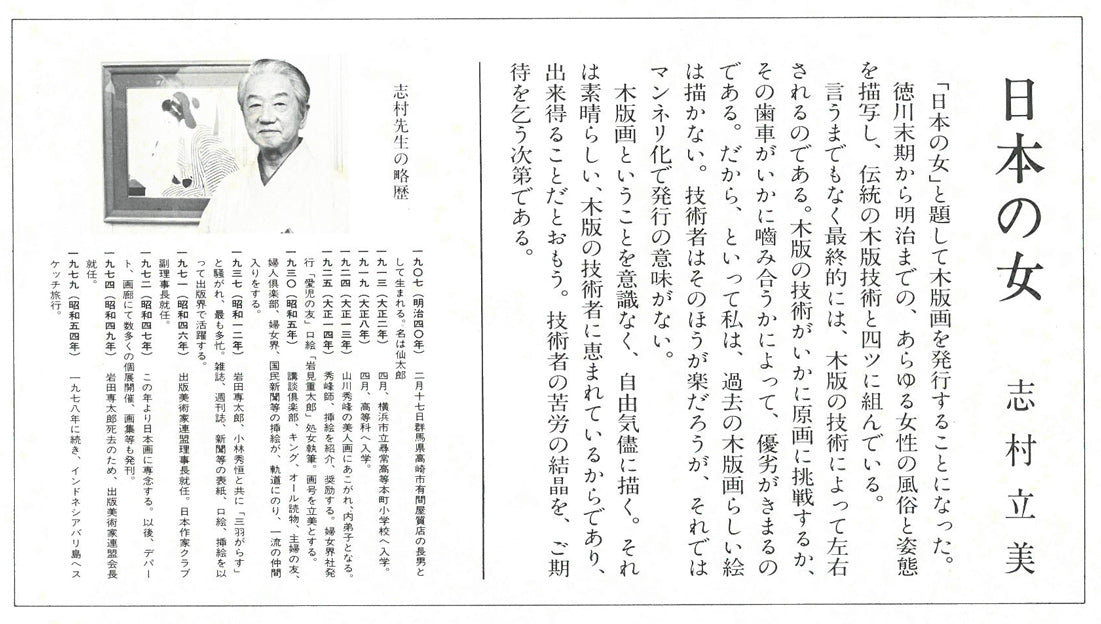 日本の女
志村立美
「日本の女」と題して木版画を発行することになった。
徳川末期から明治までの、あらゆる女性の風俗と姿態
を描写し、伝統の木版技術と四ツに組んでいる。
言うまでもなく最終的には、木版の技術によって左右
されるのである。木版の技術がいかに原画に挑戦するか、
その歯車がいかに嚙み合うかによって、優劣がきまるの
である。だから、といって私は、過去の木版画らしい絵
は描かない。技術者はそのほうが楽だろうが、それでは
マンネリ化で発行の意味がない。
木版画ということを意識なく、自由気儘に描く。それ
は素晴らしい、木版の技術者に恵まれているからであり、
出来得ることだとおもう。技術者の苦労の結晶を、ご期
待を乞う次第である。
志村先生の略歴
一九〇七(明治四〇年) 二月十七日群馬県高崎市有間屋質店の長男と
して生まれる。名は仙太郎
一九一三(大正二年) 四月、横浜市立尋常高等本町小学校へ入学。
一九一九(大正八年) 四月、高等科へ入学。
一九二四(大正一三年) 山川秀峰の美人画にあこがれ、内弟子となる。
一九二五(大正一四年) 秀峰師、挿絵を紹介、奨励する。婦女界社発
行「愛児の友」口絵「岩見重太郎」処女執筆。画号を立美とする。
一九三〇(昭和五年) 講談倶楽部、キング、オール読物、主婦の友、
婦人倶楽部、婦女界、国民新聞等の挿絵が、軌道にのり、一流の仲間
入りをする。
一九三七(昭和一二年) 岩田専太郎、小林秀恒と共に「三羽がらす」
と騒がれ、最も多忙。雑誌、週刊誌、新聞等の表紙、口絵、挿絵を以
って出版界で活躍する。
一九七一(昭和四六年) 出版美術家連盟理事長就任。日本作家クラブ
副理事長就任。
一九七二(昭和四七年) この年より日本画に専念する。以後、デパー
ト、画廊にて数多くの個展開催、画集等も発刊。
一九七四(昭和四九年) 岩田専太郎死去のため、出版美術家連盟会長
就任。
一九七九(昭和五四年) 一九七八年に続き、インドネシアバリ島へス
ケッチ旅行。